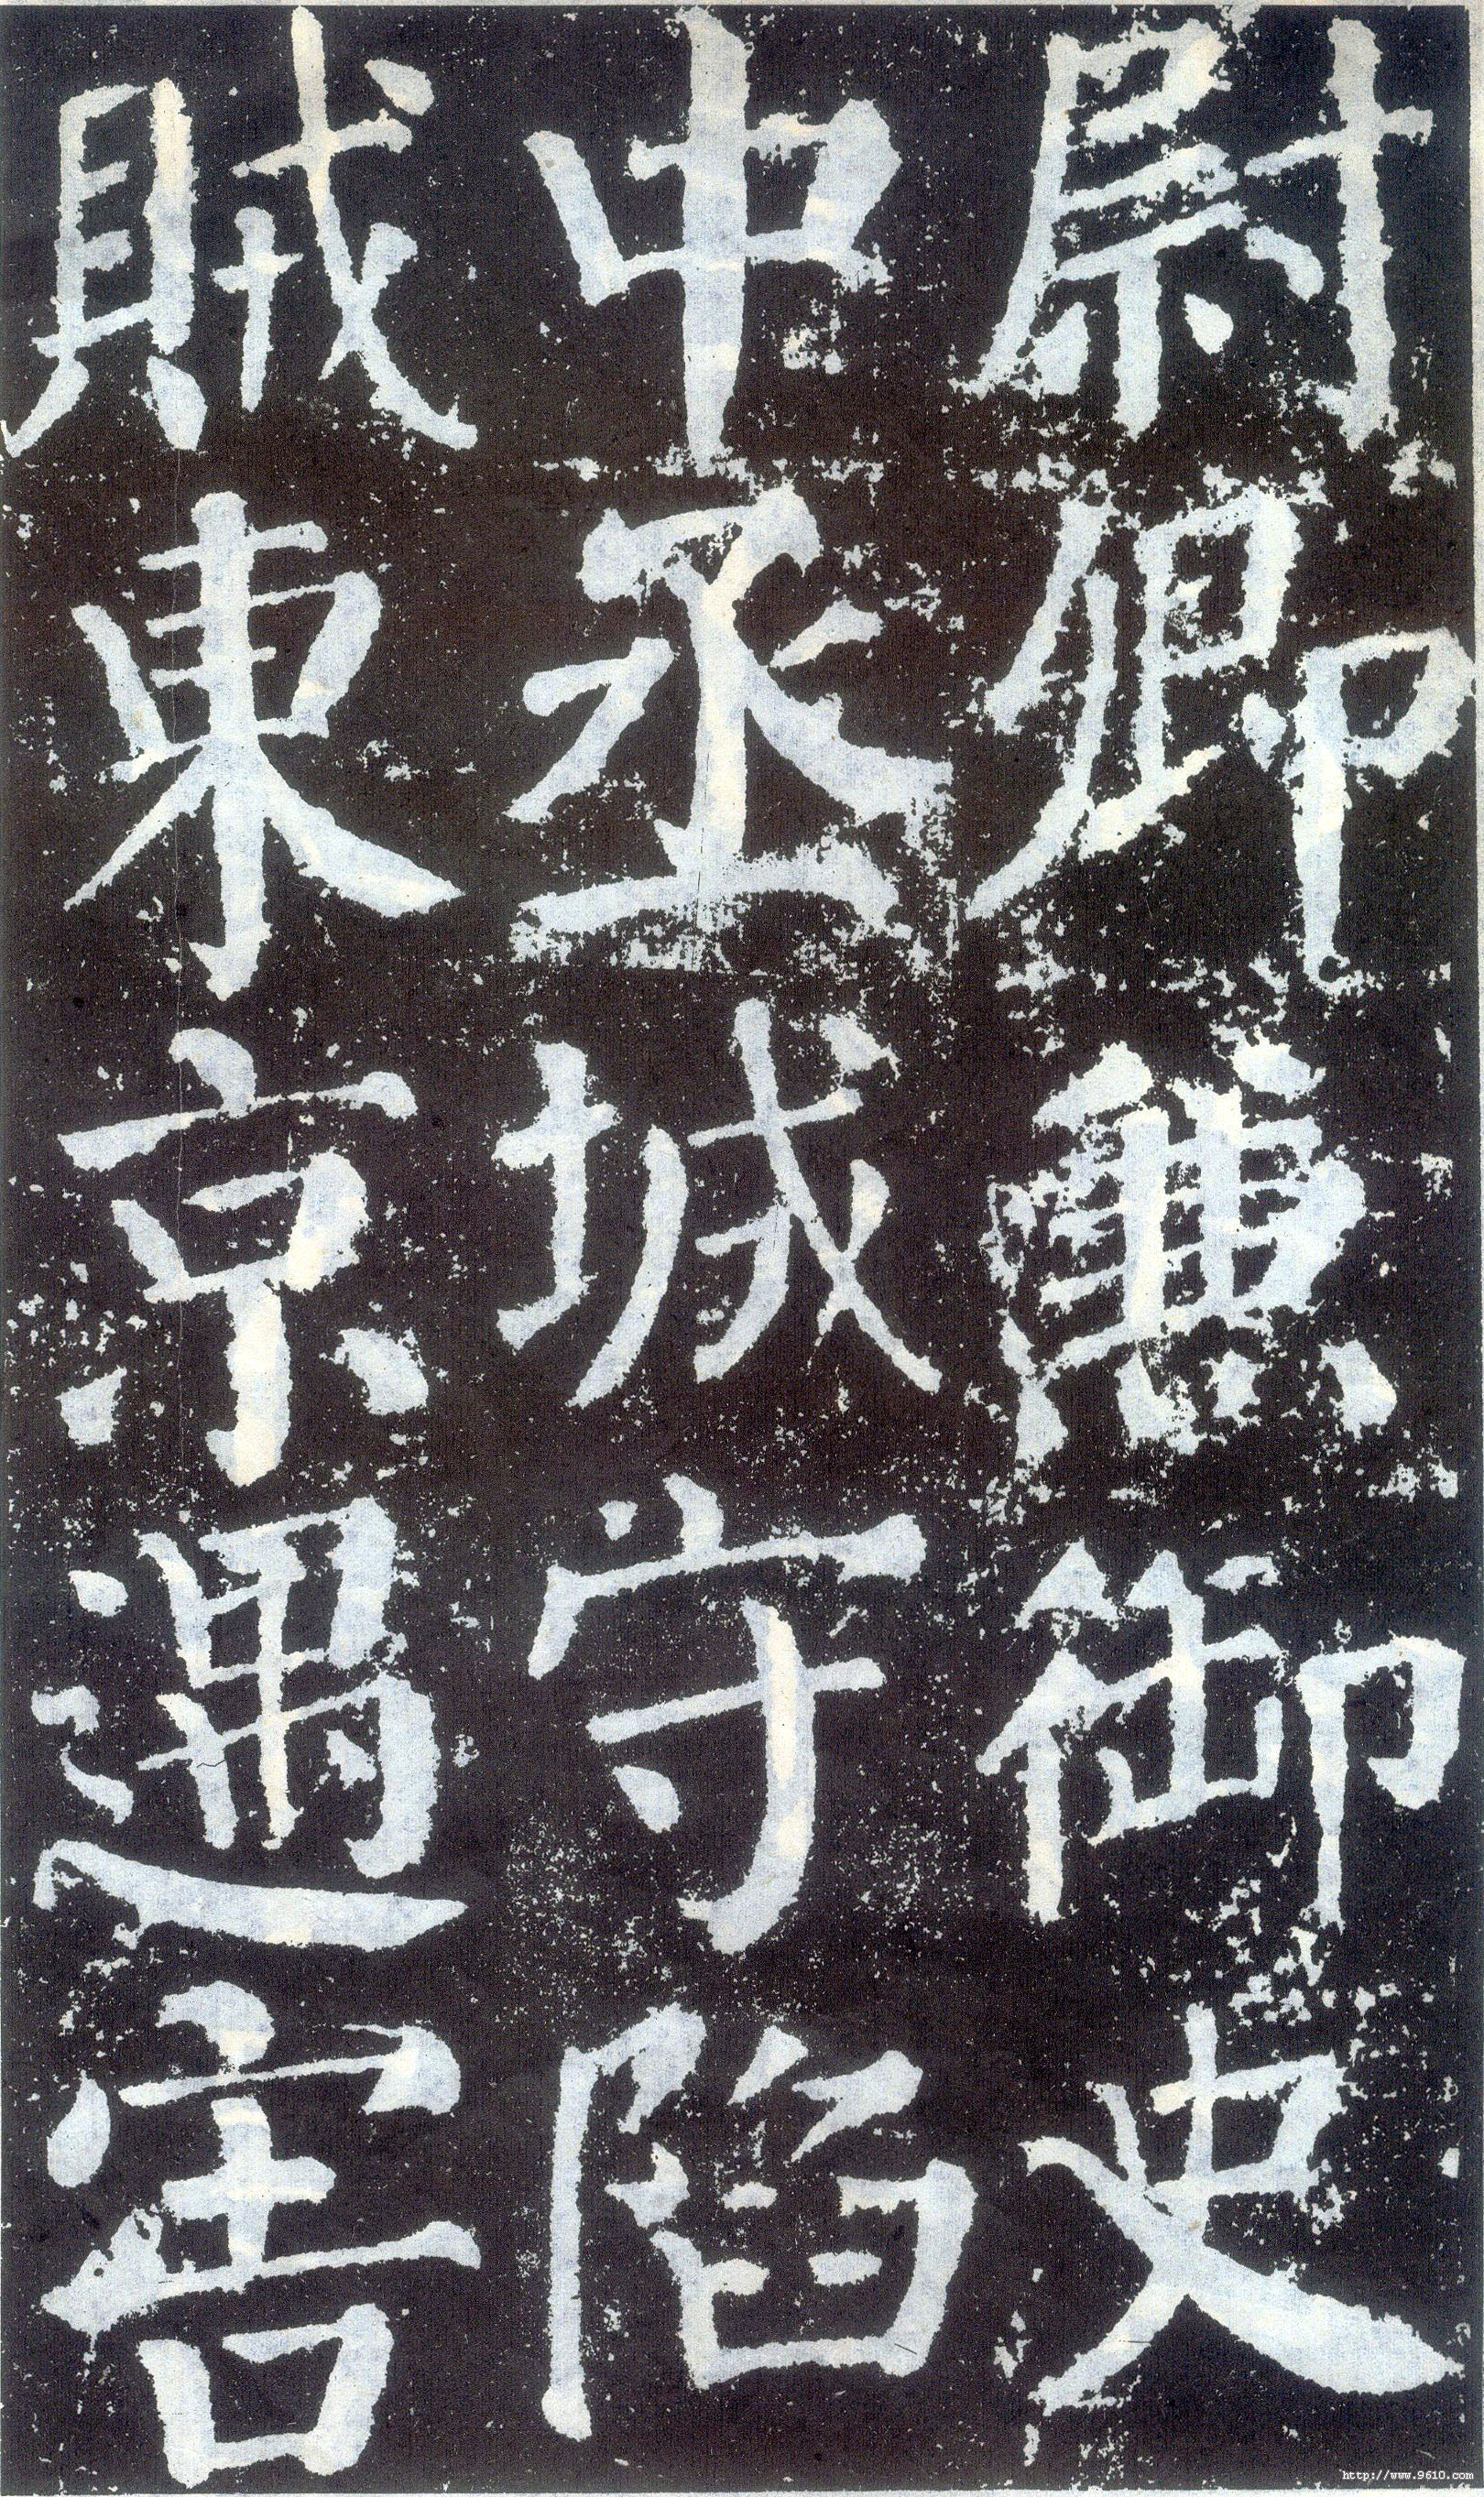 尉卿兼御史
中丞城守陷
賊東京遇害
http://www.9610.com